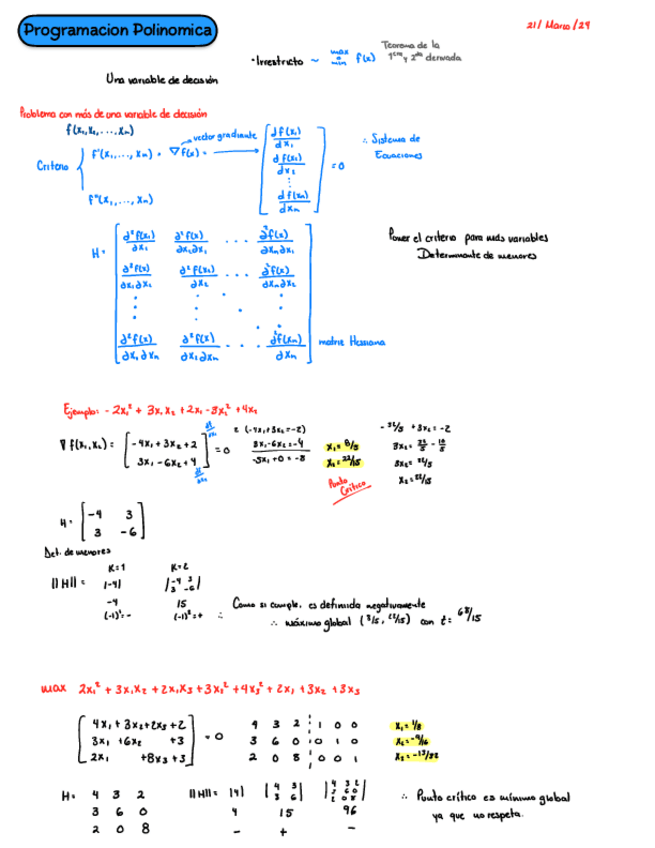 Programacion Polinomica
21/Marzo/24
• Irrestricto ~ max o min f(x) Teorema de la 1era y 2da derivada
Una variable de decisión
Problema con más de una variable de decisión
f(x₁,x₂,...,xn)
Criterio
f'(x₁,...,xn) = ∇f(x) =
vector gradiente
df(x₁)/dx₁
df(x₂)/dx₂
⋮
df(xn)/dxn
= 0
∴ Sistema de Ecuaciones
f''(x₁,...,xn)
Poner el criterio para más variables
Determinante de menores
H =
∂²f(x₁)/∂x₁ ∂²f(x)/∂x₁∂x₂ ... ∂²f(x)/∂xn∂x₁
∂²f(x)/∂x₁∂x₂ ∂²f(x₂)/∂x₂ ... ∂²f(x)/∂xn∂x₂
∂²f(x)/∂x₁∂xn ∂²f(x)/∂x₂∂xn ... ∂²f(xn)/∂xn
matriz Hessiana
Ejemplo: - 2x₁² + 3x₁x₂ + 2x₁ - 3x₂² + 4x₂
∇f(x₁,x₂) = [-4x₁ + 3x₂ + 2
3x₁ - 6x₂ + 4] = 0
2 (-4x₁ + 3x₂ = -2)
3x₁ - 6x₂ = -4
-5x₁ + 0 = -8
x₁ = 8/5
x₂ = 22/15
Punto Crítico
- 32/5 + 3x₂ = -2
3x₂ = 32/5 - 10/5
3x₂ = 22/5
x₂ = 22/15
H = [-4 3
3 -6]
Det. de menores
K=1 K=2
||H|| = |-4| |-4 3
3 -6|
-4 15
(-1)¹ = - (-1)² = + ∴
Como si cumple. es definida negativamente
∴ máximo global (8/5, 22/15) con z = 68/15
max 2x₁² + 3x₁x₂ + 2x₁x₃ + 3x₂² + 4x₃² + 2x₁ + 3x₂ + 3x₃
[4x₁ + 3x₂ + 2x₃ + 2
3x₁ + 6x₂ + 3
2x₁ + 8x₃ + 3] = 0
4 3 2 1 0 0
3 6 0 0 1 0
2 0 8 0 0 1
x₁ = 1/8
x₂ = -9/16
x₃ = -13/32
H = 4 3 2
3 6 0
2 0 8
||H|| = |4| |4 3
3 6| |4 3 2
3 6 0
2 0 8|
4 15 96
- + -
∴ Punto crítico es mínimo global
ya que no respeta.